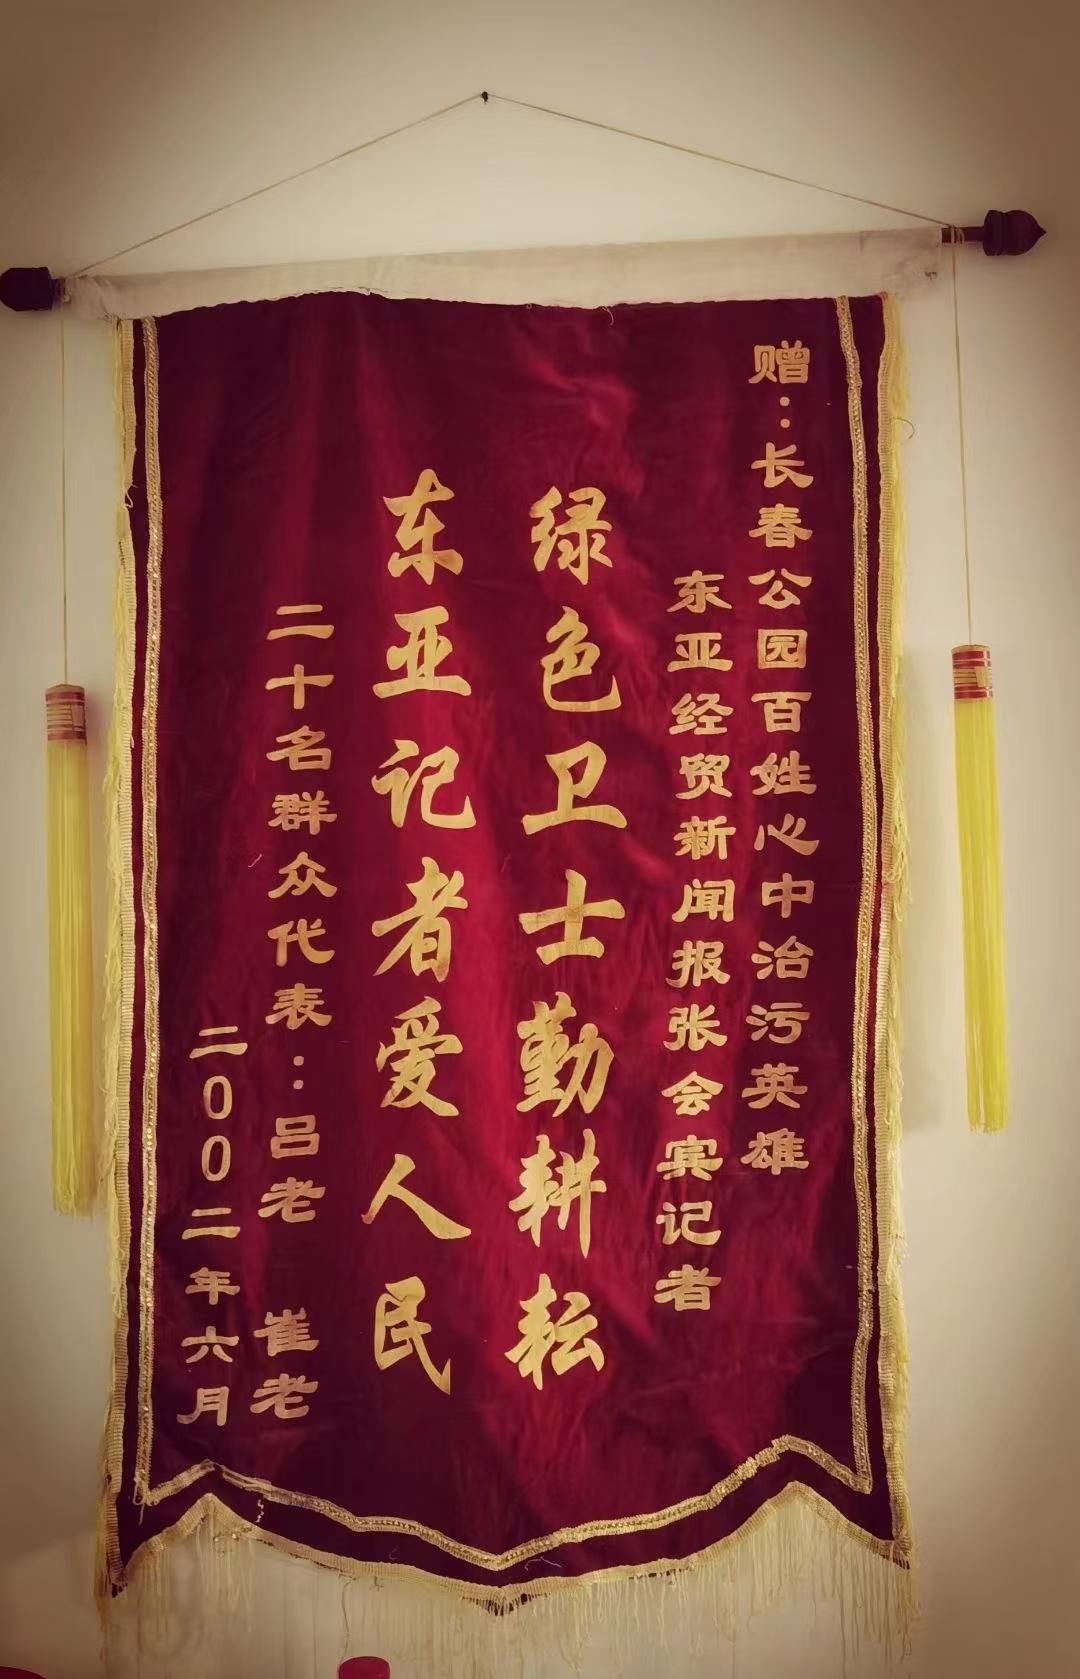 赠：长春公园百姓心中治污英雄
东亚经贸新闻报张会宾记者
绿色卫士勤耕耘
东亚记者爱人民
二十名群众代表：吕老 崔老
二00二年六月